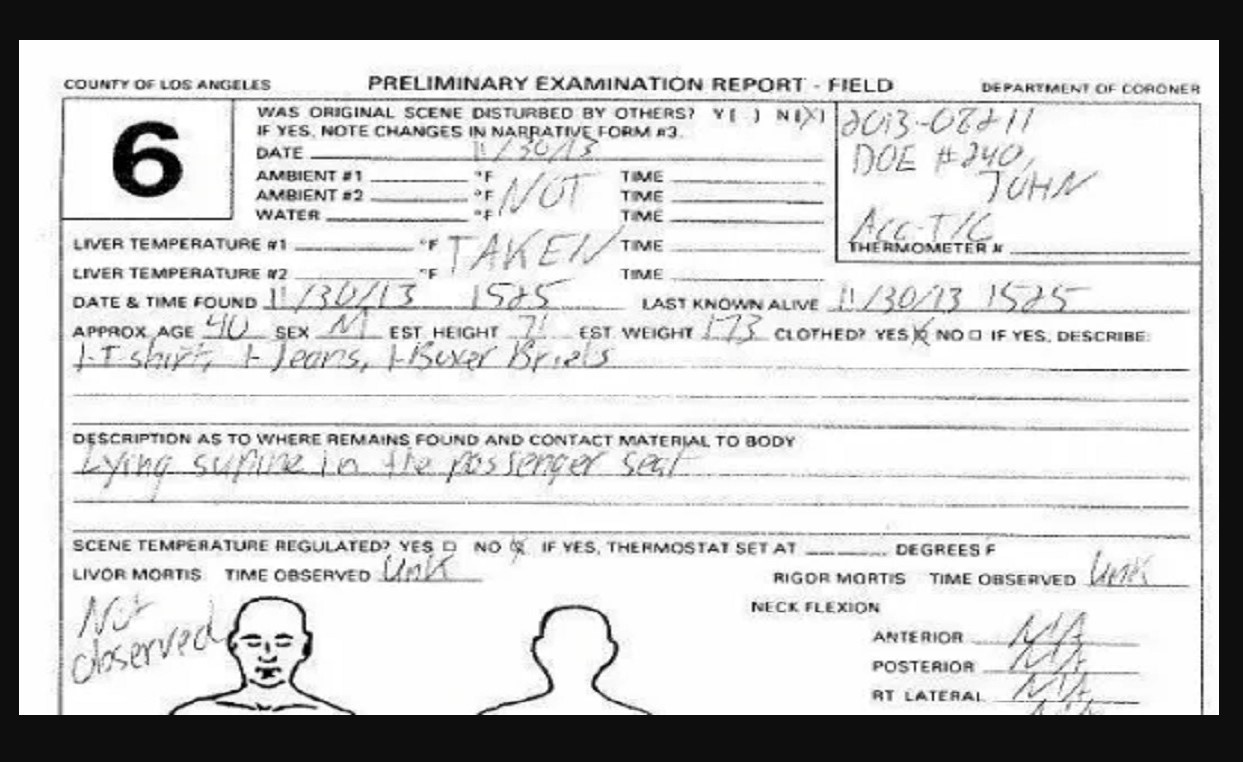 COUNTY OF LOS ANGELES PRELIMINARY EXAMINATION REPORT - FIELD DEPARTMENT OF CORONER
6
WAS ORIGINAL SCENE DISTURBED BY OTHERS? Y ( ) N (X)
IF YES, NOTE CHANGES IN NARRATIVE FORM #3.
DATE 11/30/13
AMBIENT #1 °F TIME
AMBIENT #2 °F NOT TIME
WATER °F TIME
2013-08211
DOE #240,
JOHN
Acc-T/C
THERMOMETER #
LIVER TEMPERATURE #1 °F TAKEN TIME
LIVER TEMPERATURE #2 °F TIME
DATE & TIME FOUND 11/30/13 1525 LAST KNOWN ALIVE 11/30/13 1525
APPROX. AGE 40 SEX M EST. HEIGHT 71 EST. WEIGHT 173 CLOTHED? YES ☒ NO ☐ IF YES, DESCRIBE:
1-T shirt, 1-Jeans, 1-Boxer Briefs
DESCRIPTION AS TO WHERE REMAINS FOUND AND CONTACT MATERIAL TO BODY
Lying supine in the passenger seat
SCENE TEMPERATURE REGULATED? YES ☐ NO ☒ IF YES, THERMOSTAT SET AT DEGREES F
LIVOR MORTIS TIME OBSERVED Unk RIGOR MORTIS TIME OBSERVED Unk
Not
observed
NECK FLEXION
ANTERIOR N/A
POSTERIOR N/A
RT LATERAL N/A